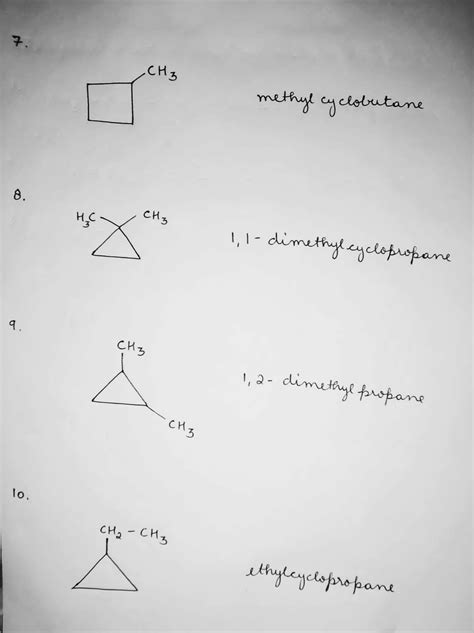 7.
CH3
methyl cyclobutane
8.
H3C CH3
1,1- dimethylcyclopropane
9.
CH3
1,2- dimethyl propane
CH3
10.
CH2 - CH3
ethylcyclopropane